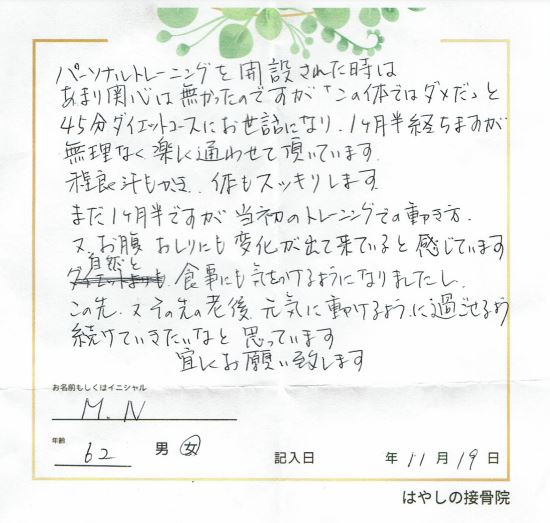 パーソナルトレーニングを開設された時は
あまり関心は無かったのですが「この体ではダメだ」と
45分ダイエットコースにお世話になり、1ヶ月半経ちますが
無理なく楽しく通わせて頂いています。
程良く汗もかき、体もスッキリします
まだ1ヶ月半ですが当初のトレーニングでの動き方、
又、お腹おしりにも変化が出て来ていると感じています
自然と
食事にも気をつけるようになりましたし、
この先、又その先の老後、元気に動けるように過ごせるよう
続けていきたいなと思っています
宜しくお願い致します
お名前もしくはイニシャル
M.N
年齢
62 男 女
記入日 年 11 月 19 日
はやしの接骨院